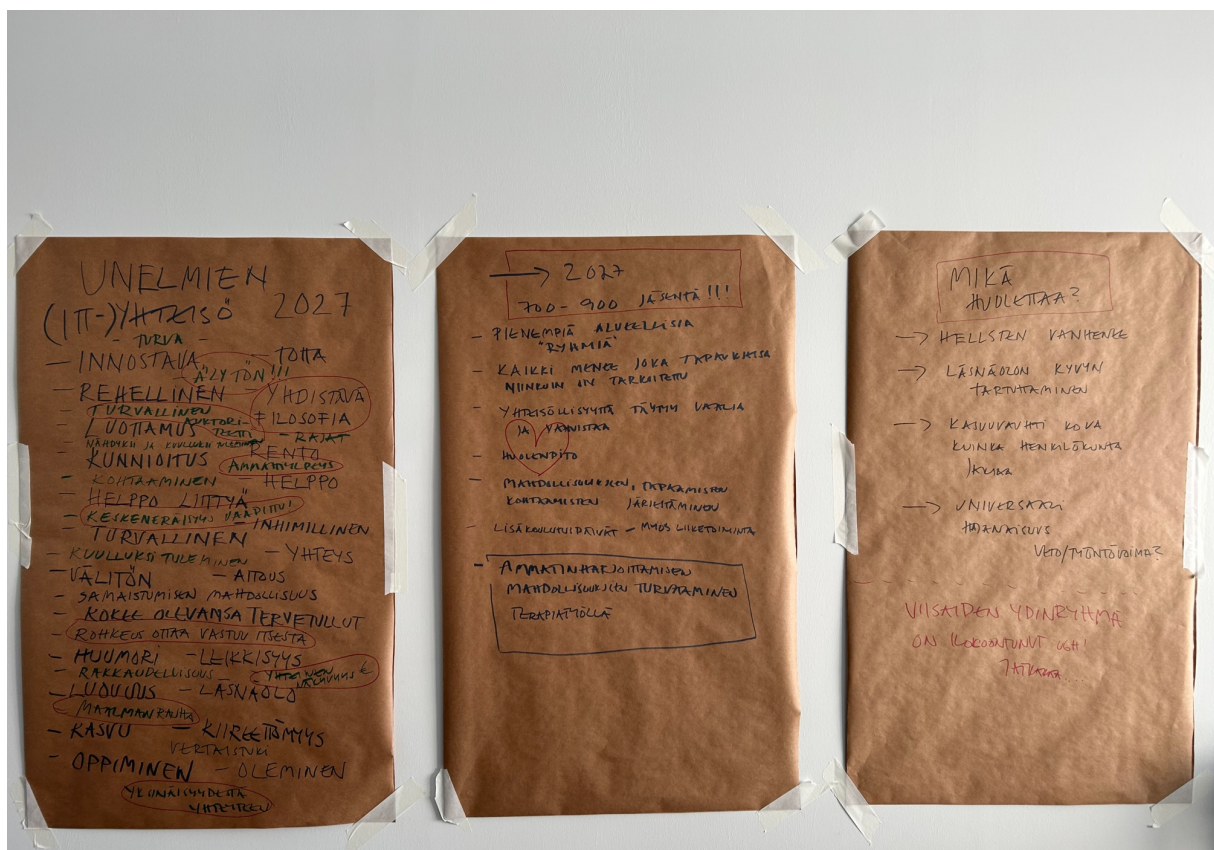 UNELMIEN
(ITT-)YHTEISÖ 2027
- TURVA -
- INNOSTAVA - TOTTA
- ÄLYTÖN!!!
- REHELLINEN - YHDISTÄVÄ
- TURVALLINEN FILOSOFIA
- LUOTTAMUS - RAJAT
NÄHDYKSI JA KUULLUKSI
- KUNNIOITUS - RENTO
AMMATTIYLPEYS
- KOHTAAMINEN - HELPPO
- HELPPO LIITTYÄ
- KESKENERÄISYYS VAADITTU!
- TURVALLINEN - INHIMILLINEN
- KUULLUKSI TULEMINEN - YHTEYS
- VÄLITÖN - AITOUS
- SAMAISTUMISEN MAHDOLLISUUS
- KOKEE OLEVANSA TERVETULLUT
- ROHKEUS OTTAA VASTUU ITSESTÄ
- HUUMORI - LEIKKISYYS
- RAKKAUDELLISUUS YHTEINEN
- LUOVUUS - LÄSNÄOLO
- MAAILMANRAUHA
- KASVU - KIIREETTÖMYYS
VERTAISTUKI
- OPPIMINEN - OLEMINEN
YKSINÄISYYDESTÄ
YHTEYTEEN
→ 2027
700-900 JÄSENTÄ!!!
- PIENEMPIÄ ALUEELLISIA
"RYHMIÄ"
- KAIKKI MENEE JOKA TAPAUKSESSA
NIINKUIN ON TARKOITETTU
- YHTEISÖLLISYYTTÄ TÄYTYY VAALIA
JA VAHVISTAA
- HUOLENPITO
- MAHDOLLISUUKSIEN, TAPAAMISTEN
KOHTAAMISTEN JÄRJESTÄMINEN
- LISÄKOULUTUSPÄIVÄT - MYÖS LIIKETOIMINTA
- AMMATINHARJOITTAMISEN
MAHDOLLISUUKSIEN TURVAAMINEN
TERAPIATYÖLLÄ
MIKÄ
HUOLETTAA?
→ HELLSTEN VANHENEE
→ LÄSNÄOLON KYVYN
TARTUTTAMINEN
→ KASVUVAUHTI KOVA
KUINKA HENKILÖKUNTA
JAKSAA
→ UNIVERSAALI
VETO/TYÖNTÖVOIMA?
VIISAIDEN YDINRYHMÄ
ON KOKOONTUNUT UGH!